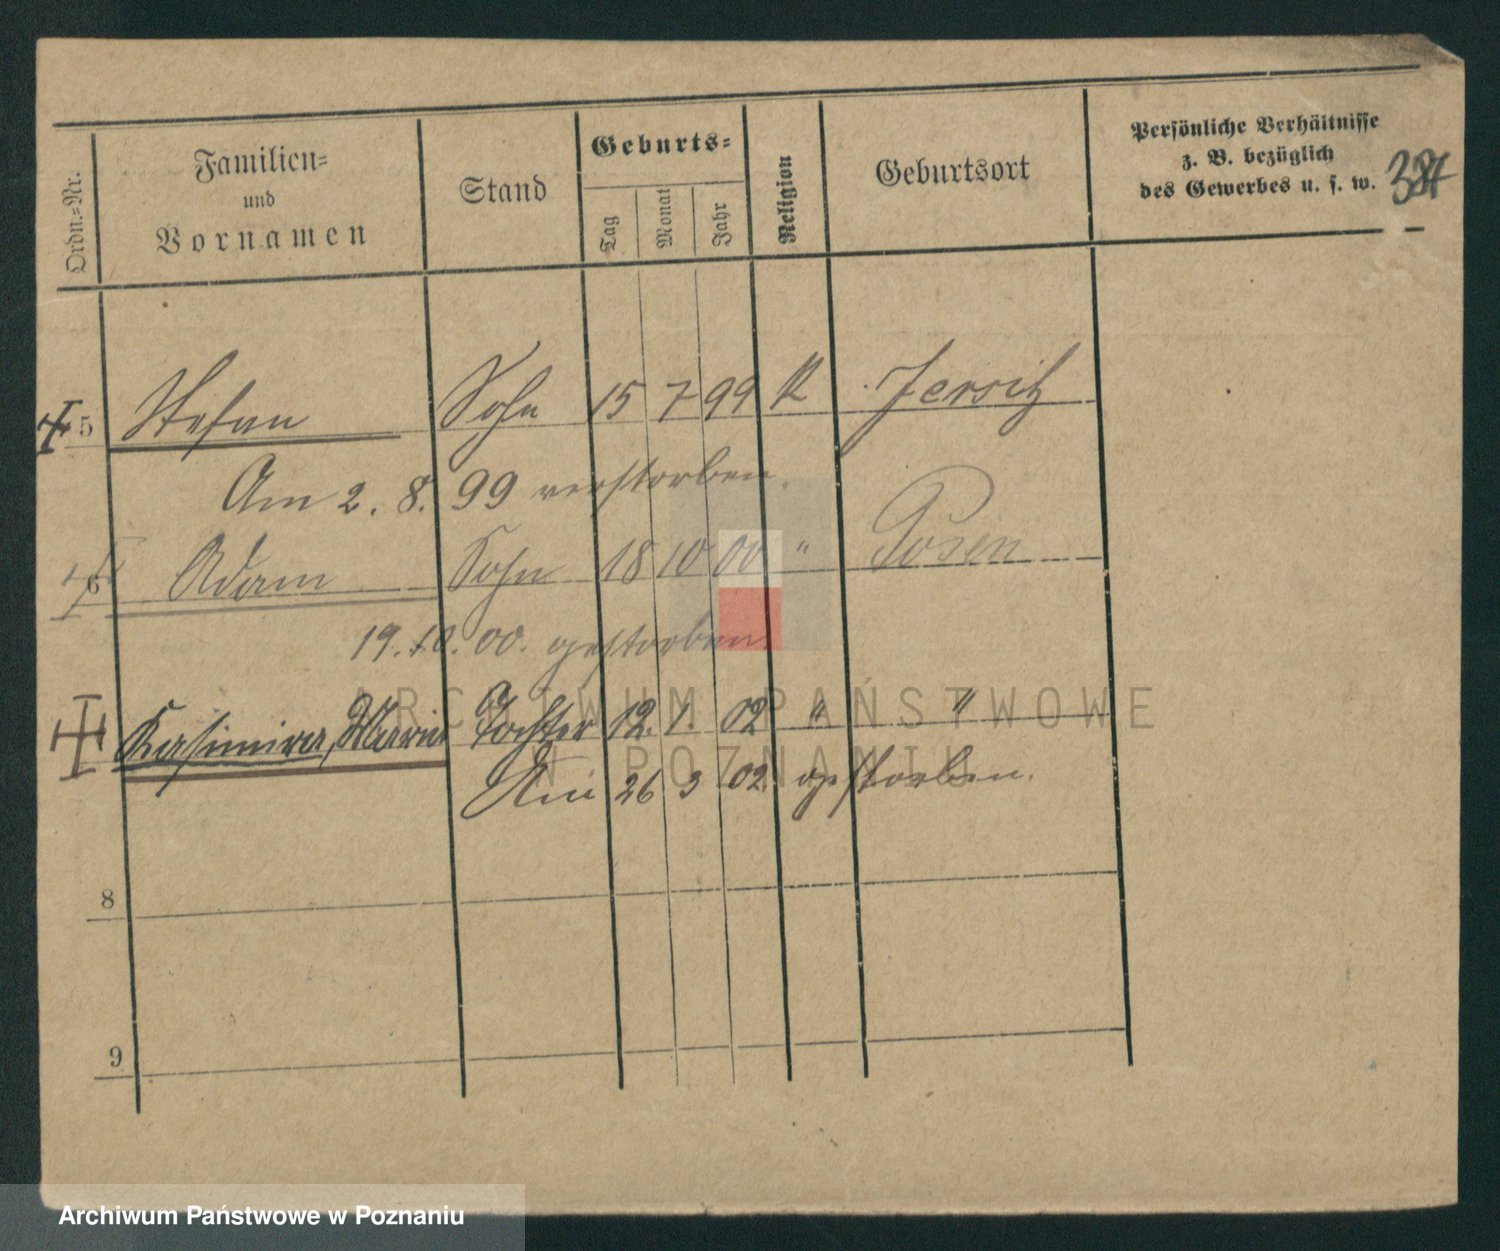 Ordn.-Nr.
Familien-
und
Vornamen
Stand
Geburts-
Tag
Monat
Jahr
Religion
Geburtsort
Persönliche Verhältnisse
z. B. bezüglich
des Gewerbes u. s. w.
384
5 Stefan Sohn 15 7 99 K Jersitz
Am 2. 8. 99 verstorben.
6 Adam Sohn 18 10 00 " Posen
19. 10. 00. gestorben.
Kasimira, Maria Tochter 12. 1. 02 " "
Am 26 3 02 gestorben.
8
9
ARCHIWUM PAŃSTWOWE
W POZNANIU
Archiwum Państwowe w Poznaniu